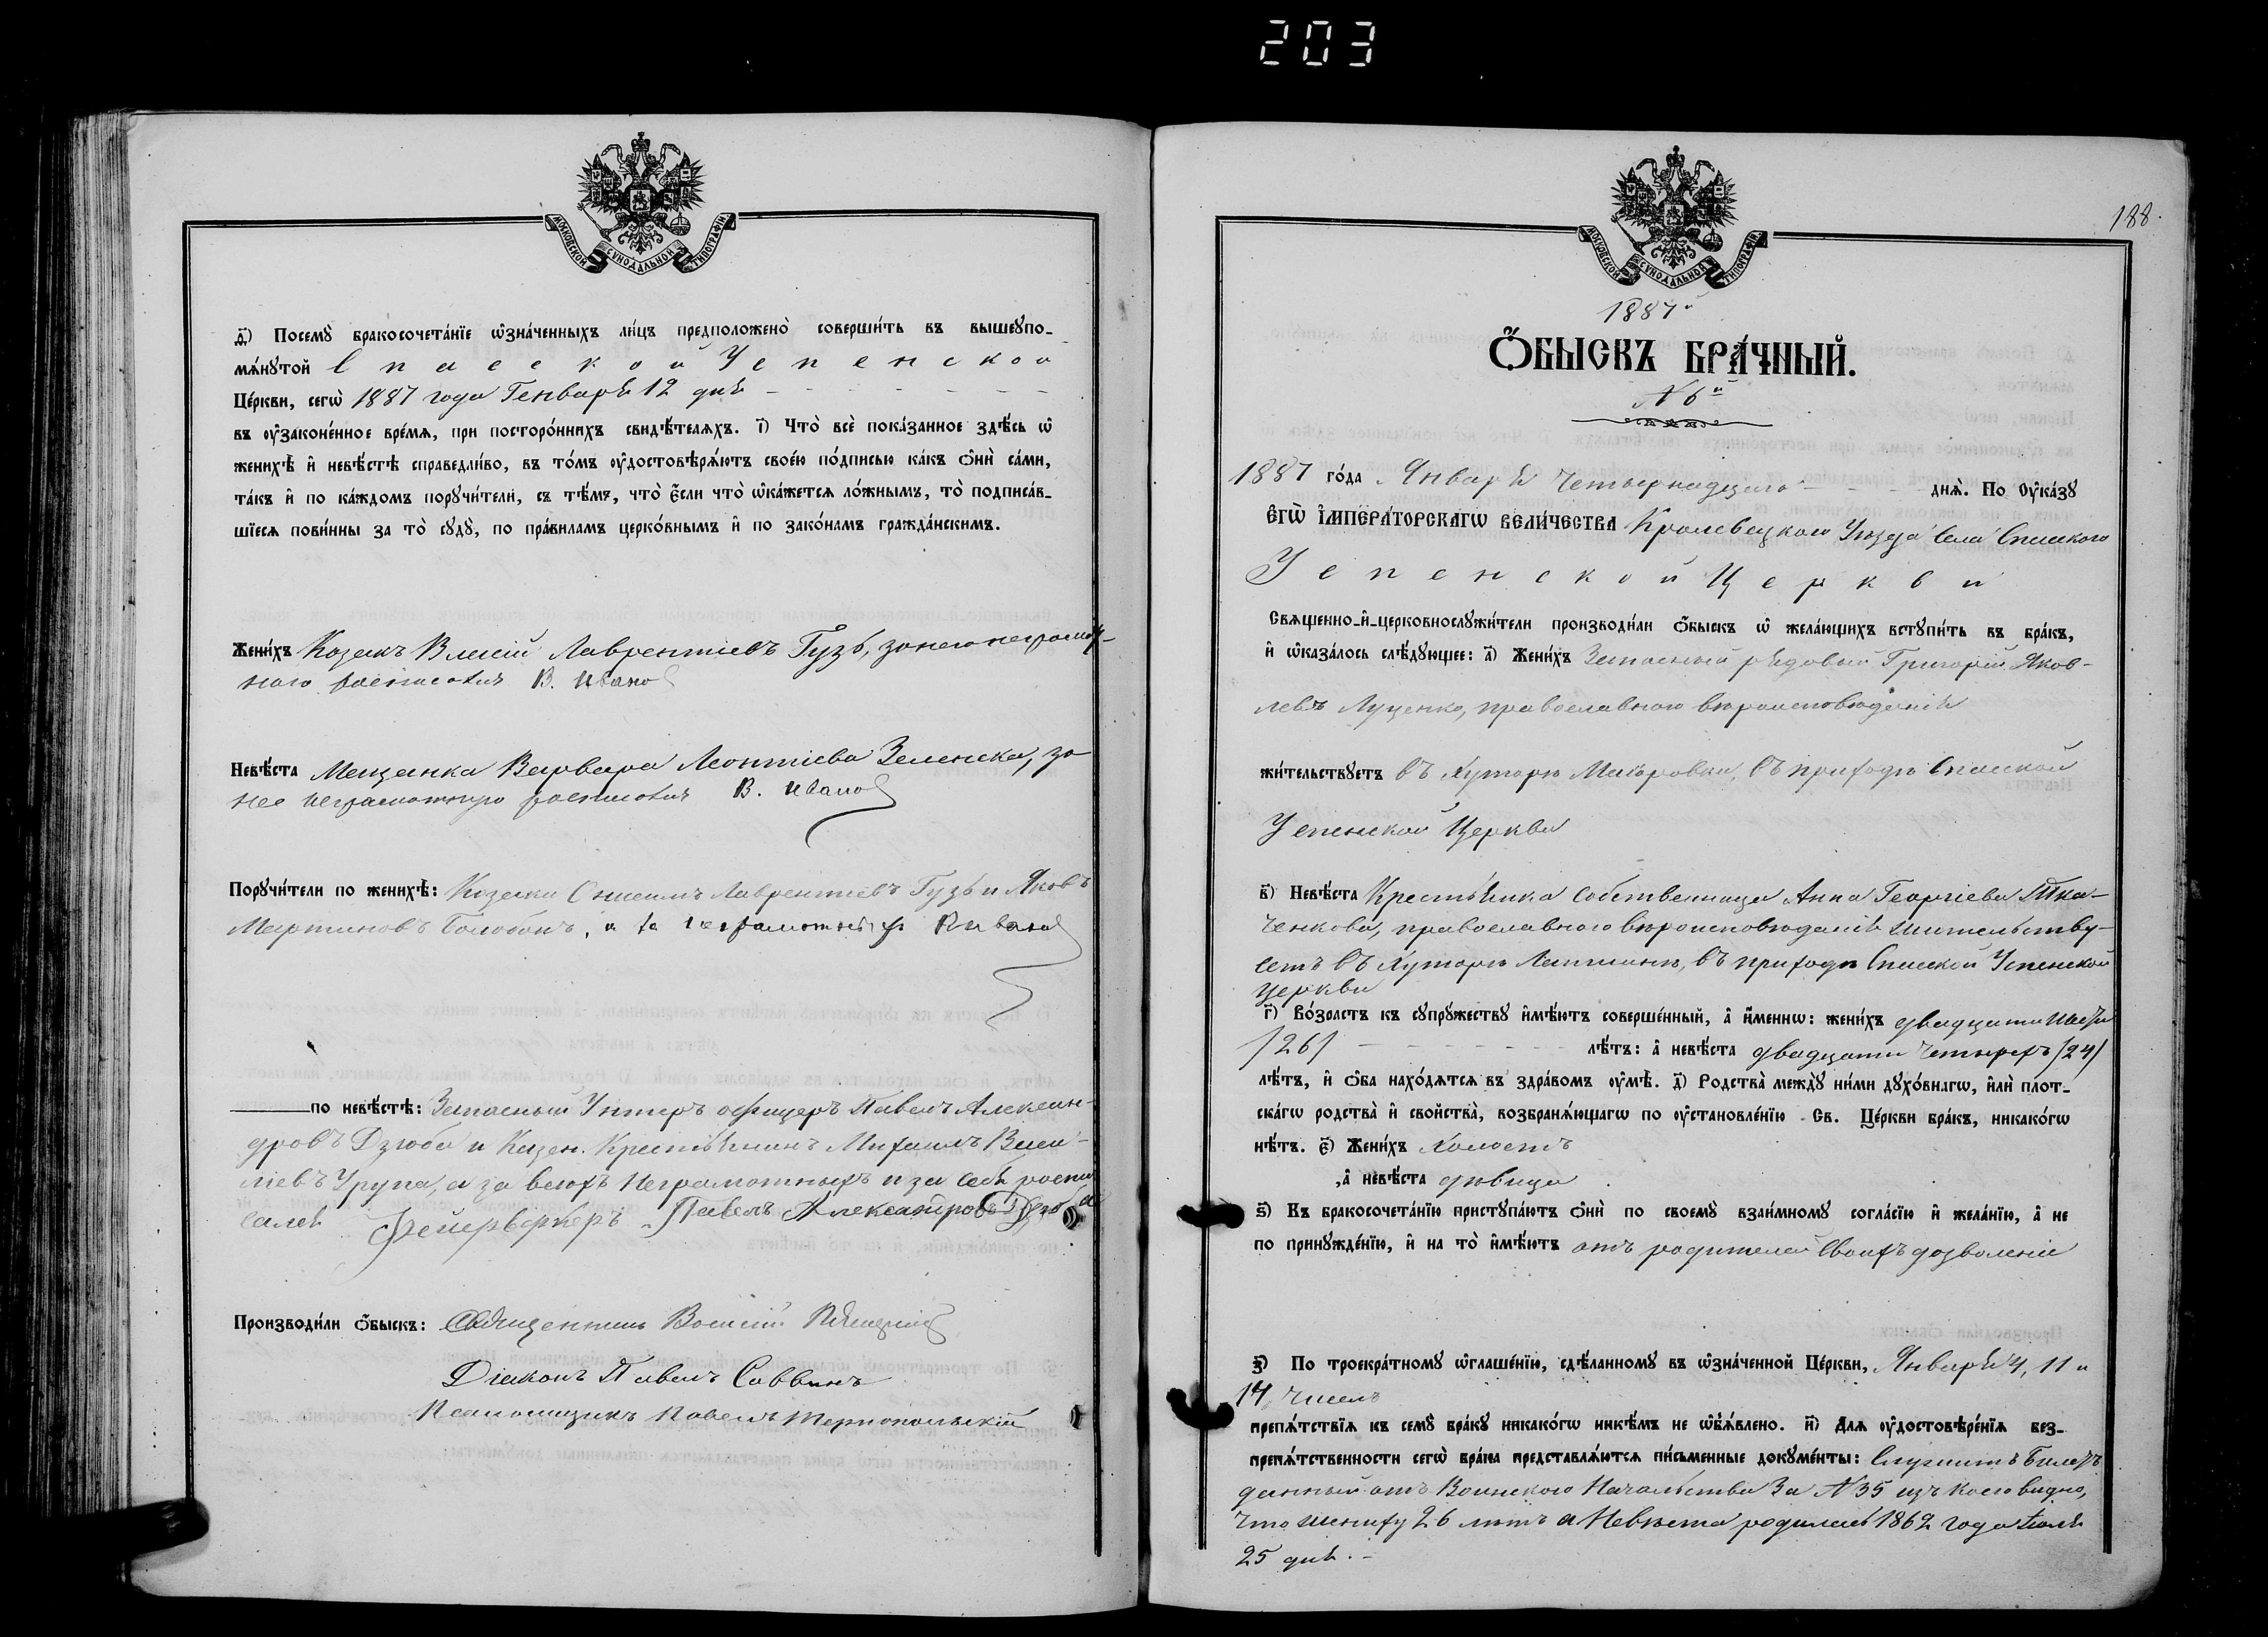 203
МОСКОВСКОЙ СѴНОДАЛЬНОЙ ТИПОГРАФІИ
ѳ҃) Посемꙋ̀ бракосочета́нїе ѿзна́ченныхъ ли́цъ предположено̀ соверши́ть въ вышеꙋпо-
мѧ́нꙋтой Спасской Успенской
Це́ркви, сегѡ̀ 1887 года Генваря 12 дня
въ оу҆законе́нное вре́мѧ, при посторо́ннихъ свидѣ́телѧхъ. і҃) Что̀ всѐ пока́занное здѣ́сь ѡ҆
женихѣ̀ и҆ невѣ́стѣ справедли́во, въ то́мъ оу҆достовѣрѧ́ютъ свое́ю по́дписью ка́къ ѻ҆нѝ са́ми,
та́къ и҆ по ка́ждомъ порꙋчи́тели, съ тѣ́мъ, что̀ є҆́сли что̀ ѡ҆ка́жетсѧ ло́жнымъ, то̀ подписа́в-
шїесѧ пови́нны за то̀ сꙋдꙋ̀, по пра́виламъ церко́внымъ и҆ по зако́намъ гражда́нскимъ.
Жени́хъ Козакъ Власій Лаврентіевъ Гузь, за него неграмот-
наго росписался В. Иванов
Невѣ́ста Мещанка Варвара Леонтіева Зеленска, за
нее неграмотную росписался В. Иванов
Порꙋчи́тели по женихѣ̀: Козаки Онисимъ Лаврентіевъ Гузь и Яковъ
Мартиновъ Болобанъ, и за неграмотных В Иванов
по невѣ́стѣ: Запасный Унтеръ офицеръ Павелъ Алексан-
дровъ Дзюба и Казен. Крестьянинъ Михаилъ Васи-
ліевъ Урупа, а за всехъ неграмотныхъ и за себя роспи
сался Фейерверкеръ Павелъ Александровъ Дзюба
Производи́ли ѻ҆́быскъ: Священникъ Василій
Діаконъ Павелъ Саввинъ
Псаломщикъ Павелъ Тернопольскій
188.
МОСКОВСКОЙ СѴНОДАЛЬНОЙ ТИПОГРАФІИ
1887й
Ѻ҆́БЫСКЪ БРА́ЧНЫЙ.
N 6й
1887 го́да Января Четырнадцаго днѧ̀. По Оу҆ка́зꙋ
Є҆ГѠ̀ І҆МПЕРА́ТОРСКАГѠ ВЕЛИ́ЧЕСТВА Кролевецкаго Уѣзда Села Спаского
Успенской Церкви
Свѧщенно-и҆-церковнослꙋжи́тели производи́ли ѻ҆́быскъ ѡ҆ жела́ющихъ встꙋпи́ть въ бра́къ,
и҆ ѡ҆каза́лось слѣ́дꙋющее: а҃) Жени́хъ Запасный рядовый Григорій Яков-
левъ Луценко, православнаго вѣроисповѣданія
жи́тельствꙋетъ въ Хуторѣ Макаровки, въ приходѣ Спасской
Успенской Церкви
в҃) Невѣ́ста Крестьянка собственница Анна Георгіева Тка-
ченкова, православнаго вѣроисповѣданія жительству-
етъ въ Хуторѣ Лапшинѣ, въ приходѣ Спасской Успенской
Церкви
г҃) Во́зрастъ къ сꙋпрꙋ́жествꙋ и҆мѣ́ютъ соверше́нный, а҆ и҆́меннѡ: жени́хъ двадцати шесть
/26/ лѣ́тъ: а҆ невѣ́ста двадцати четырехъ /24/
лѣ́тъ, и҆ ѻ҆́ба нахо́дѧтсѧ въ здра́вомъ оу҆мѣ̀. д҃) Родства̀ междꙋ̀ ни́ми дꙋхо́внагѡ, и҆лѝ плот-
ска́гѡ родства̀ и҆ свойства̀, возбранѧ́ющагѡ по оу҆становле́нїю Св. Це́ркви бра́къ, никако́гѡ
нѣ́тъ. є҃) Жени́хъ холостъ
, а҆ невѣ́ста дѣвица
ѕ҃) Къ бракосочета́нїю пристꙋпа́ютъ ѻ҆нѝ по своемꙋ̀ взаи́мномꙋ согла́сїю и҆ жела́нїю, а҆ не
по принꙋжде́нїю, и҆ на то̀ и҆мѣ́ютъ отъ родителей своихъ дозволеніе
з҃) По троекра́тномꙋ ѡ҆глаше́нїю, сдѣ́ланномꙋ въ ѡ҆зна́ченной Це́ркви, Января 4, 11 и
14, чиселъ
препѧ́тствїѧ къ семꙋ̀ бра́кꙋ никако́гѡ никѣ́мъ не ѡ҆б̾ѧ́влено. и҃) Длѧ оу҆достовѣре́нїѧ без-
препѧ́тственности сегѡ̀ бра́ка представлѧ́ютсѧ пи́сьменные докꙋме́нты: Служитъ Билетъ
данный отъ Воинского Начальства За N 35 изъ коего видно,
что жениху 26 лѣтъ а Невѣста родилась 1862 года Іюля
25 дня. -